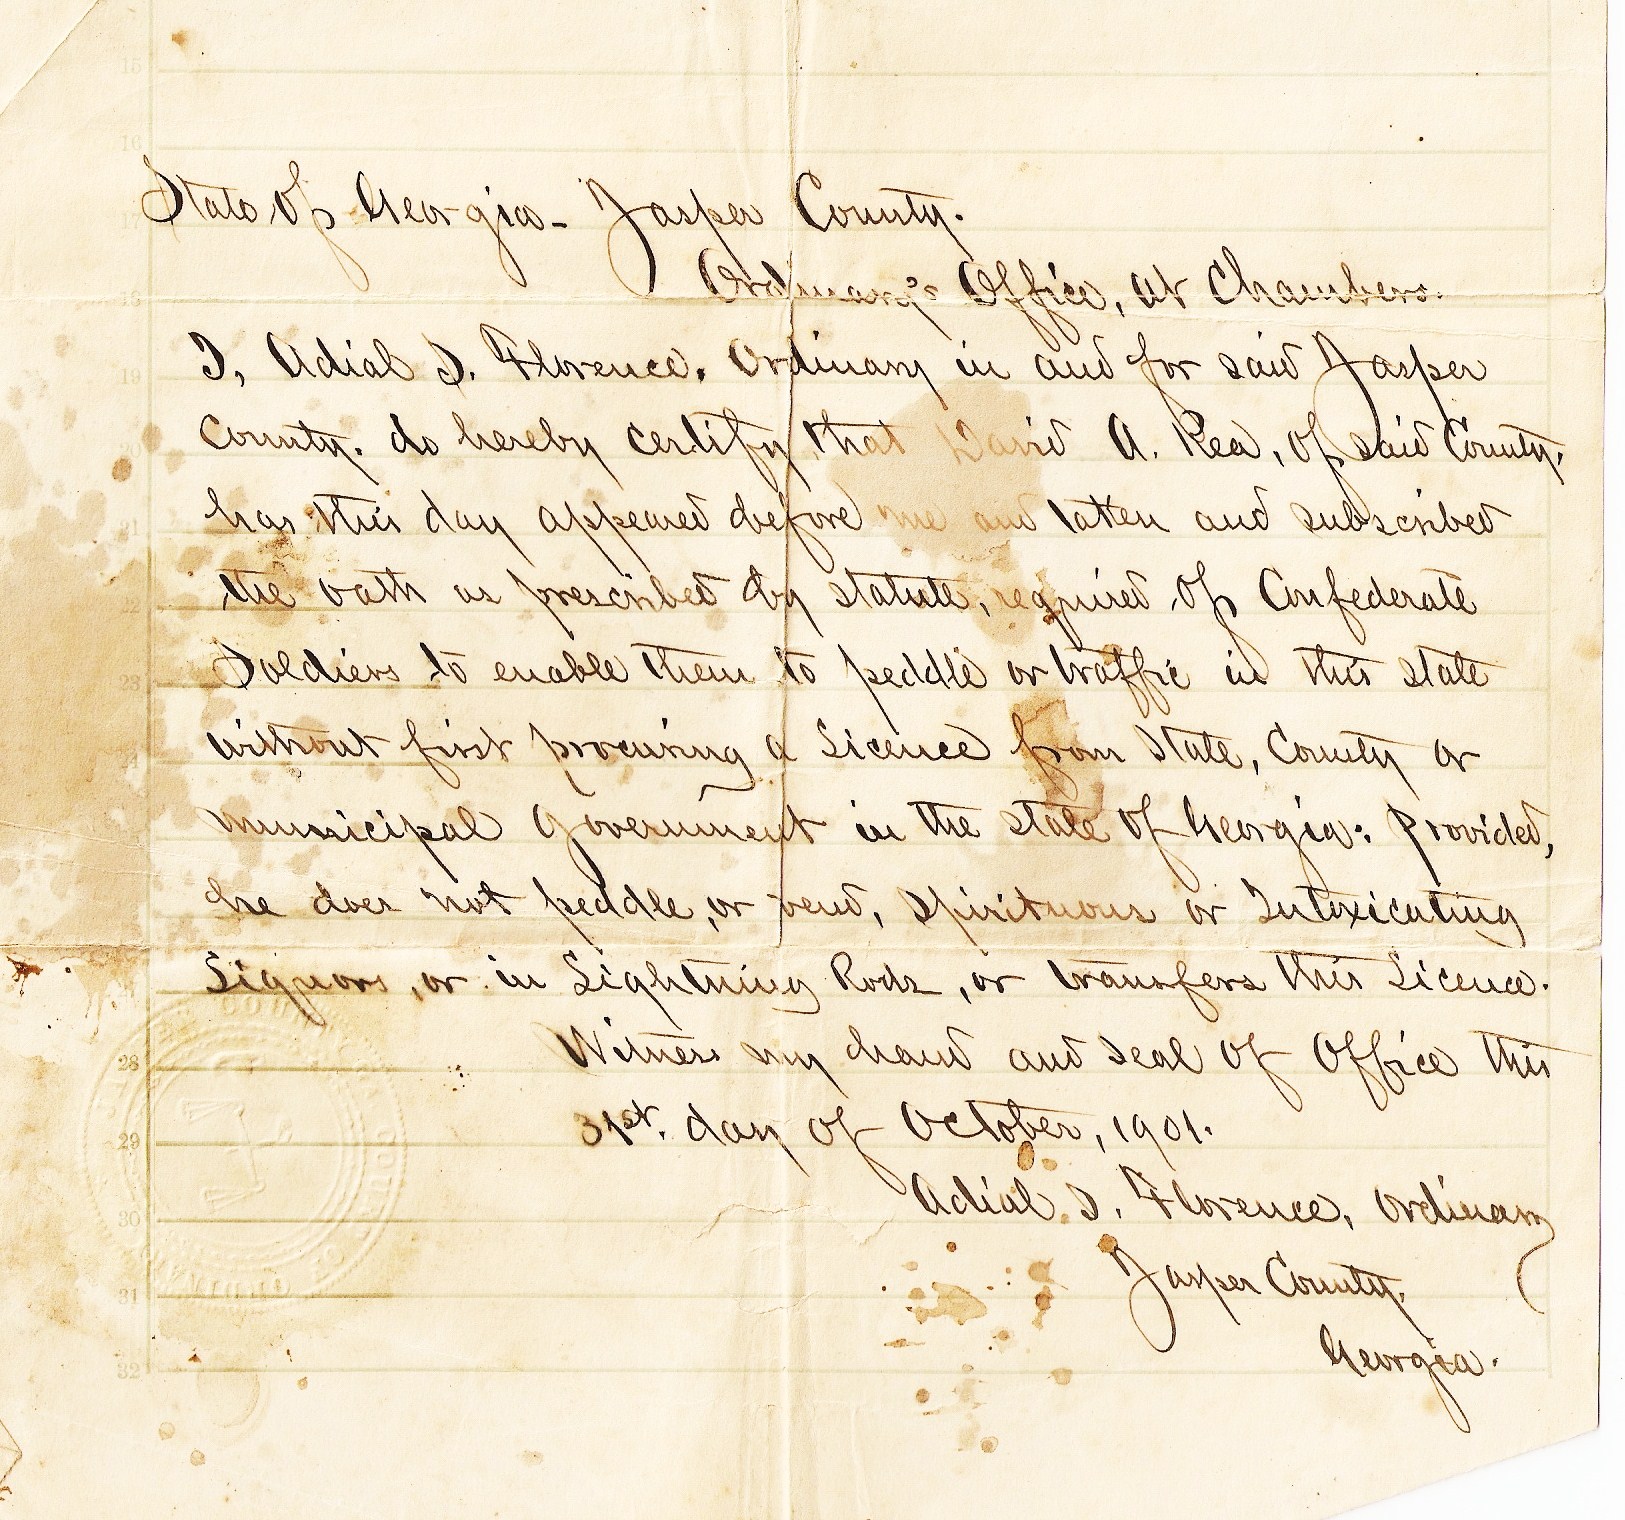 15
16
State of Georgia - Jasper County.
17
Ordinary's Office, at Chambers.
18
I, Adial S. Florence, Ordinary in and for said Jasper
19
County. do hereby certify that David A. Rea, of said County,
20
has this day appeared before me and taken and subscribed
21
the oath as prescribed by statute, required of Confederate
22
Soldiers to enable them to peddle or traffic in this state
23
without first procuring a Licence from State, County or
municipal Government in the state of Georgia: provided,
he does not peddle, or vend, spirituous or Intoxicating
Liquors, or in Lightning Rods, or transfers this Licence.
Witness my hand and seal of Office this
28
31st. day of October, 1901.
29
Adial S. Florence, Ordinary
30
Jasper County,
31
Georgia.
32